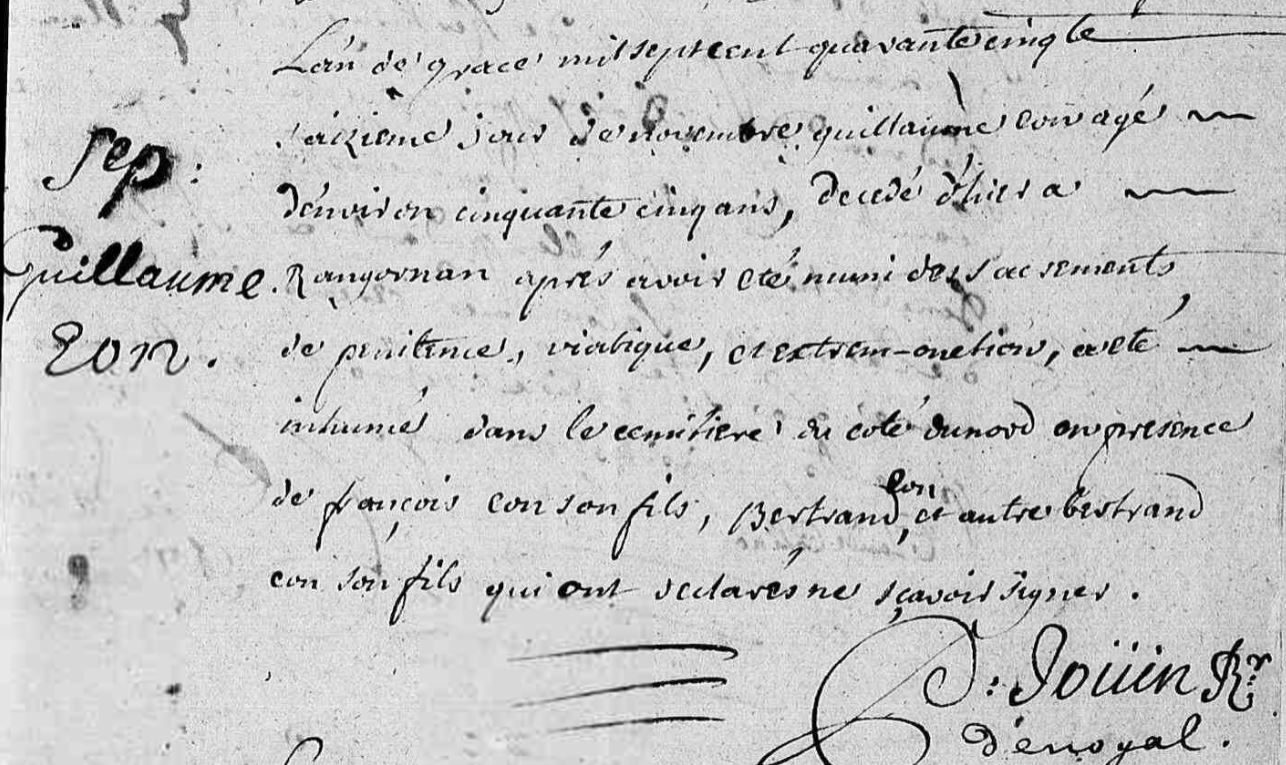 L'an de grace mil sept cent quarante cinq le
saizieme jour de novembre guillaume eon agé
d'environ cinquante cinq ans, decedé d'hier a
Rangornan aprés avoir eté muni des sacrements
de penitence, viatique, et extrem-onction, a eté
inhumé dans le cemitiere du coté du nord en presence
de françois eon son fils, Bertrand eon, et autre bertrand
eon son fils qui ont declarés ne sçavoir signer.
Sep:
Guillaume
Eon.
: Joüin Rr
d'enoyal.